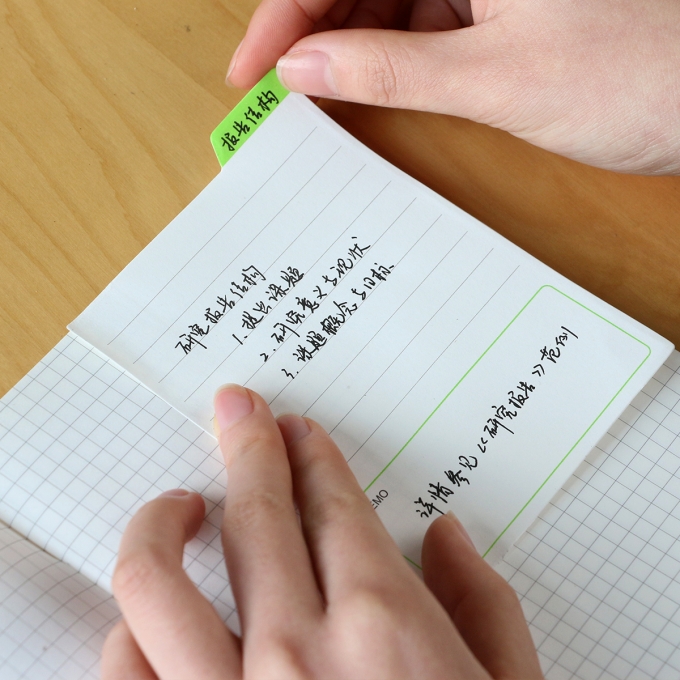 报告结构
研究报告结构
1.提出课题
2.研究意义与现状
3.课题概念与目标
详情参见《研究报告》范例
EMO